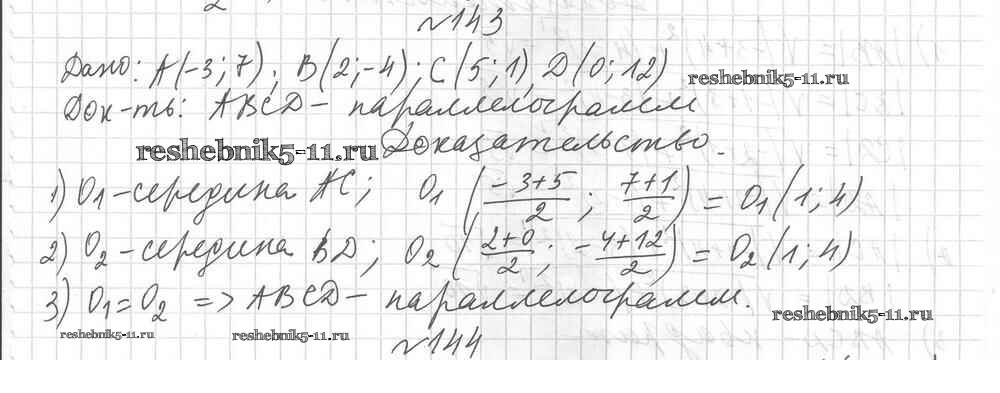 №143
Дано: A(-3; 7); B(2; -4); C(5; 1), D(0; 12)
reshebnik5-11.ru
Док-ть: ABCD - параллелограмм
Доказательство.
reshebnik5-11.ru
1) O₁-середина AC; O₁ (\frac{-3+5}{2}; \frac{7+1}{2}) = O₁(1; 4)
2) O₂-середина BD; O₂ (\frac{2+0}{2}; \frac{-4+12}{2}) = O₂(1; 4)
3) O₁=O₂ => ABCD - параллелограмм.
reshebnik5-11.ru
reshebnik5-11.ru
reshebnik5-11.ru
№144